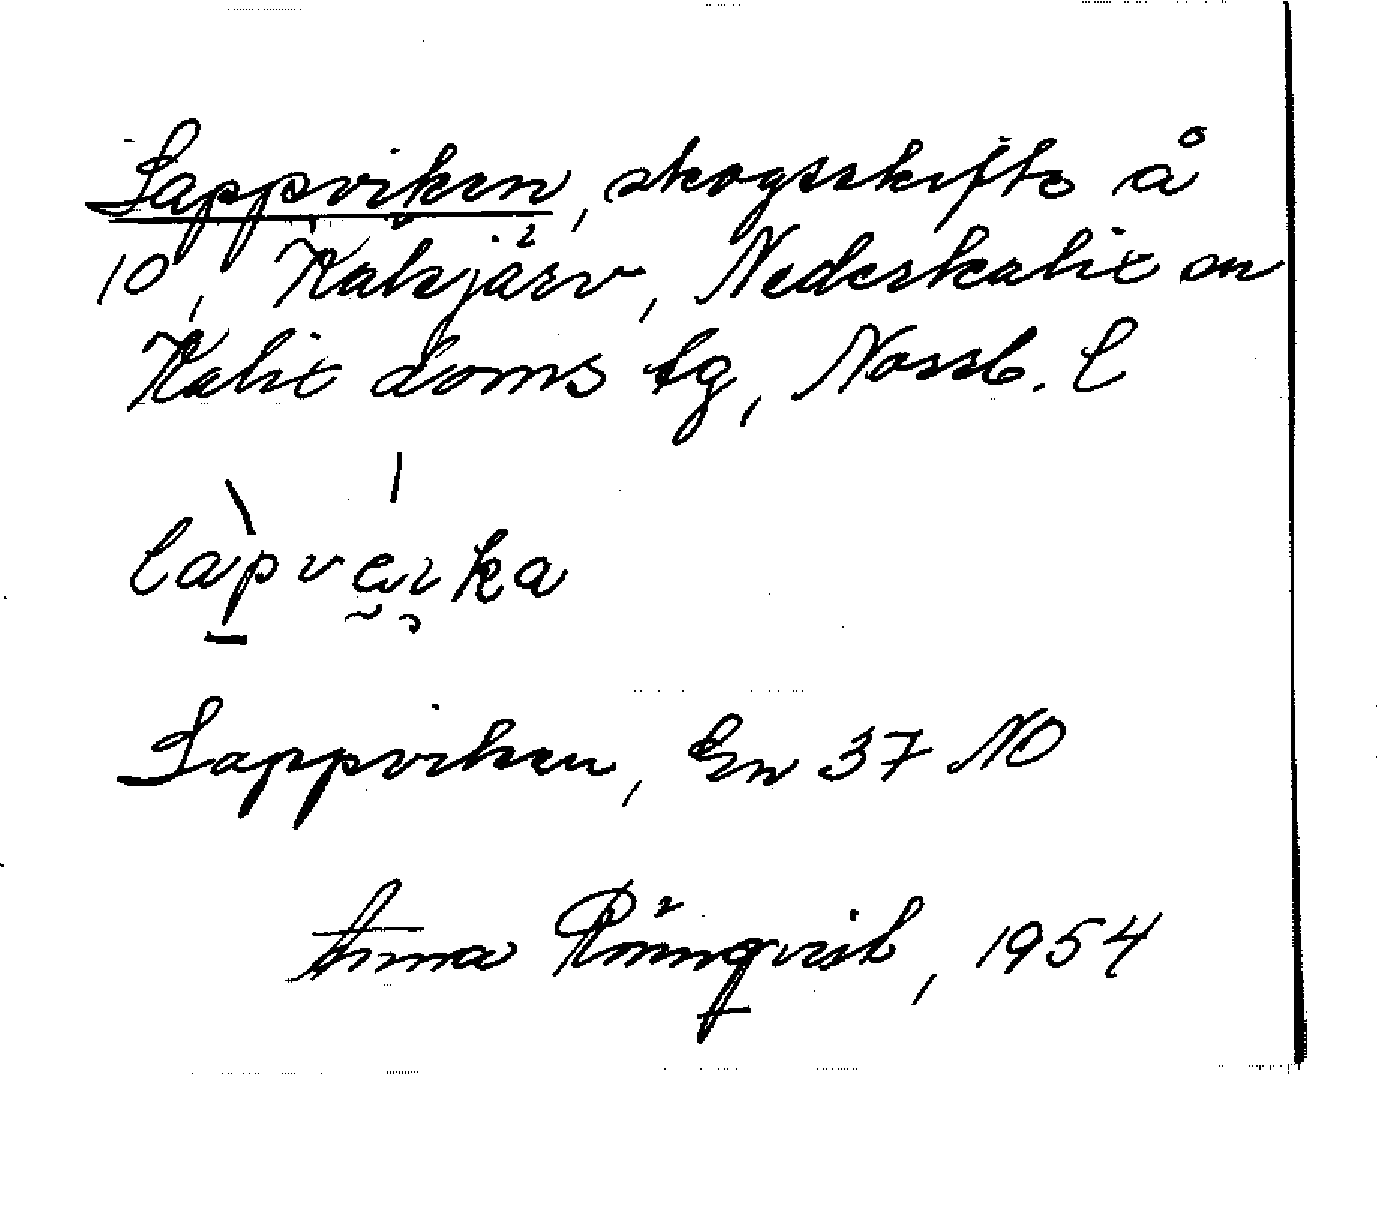 Lappviken, skogsskifte å
10, Kälvjärv, Nederkalix sn
Kalix doms tg, Norrb. l
lapveika
Lappviken, En 37 NO
Anna Rönnqvist, 1954